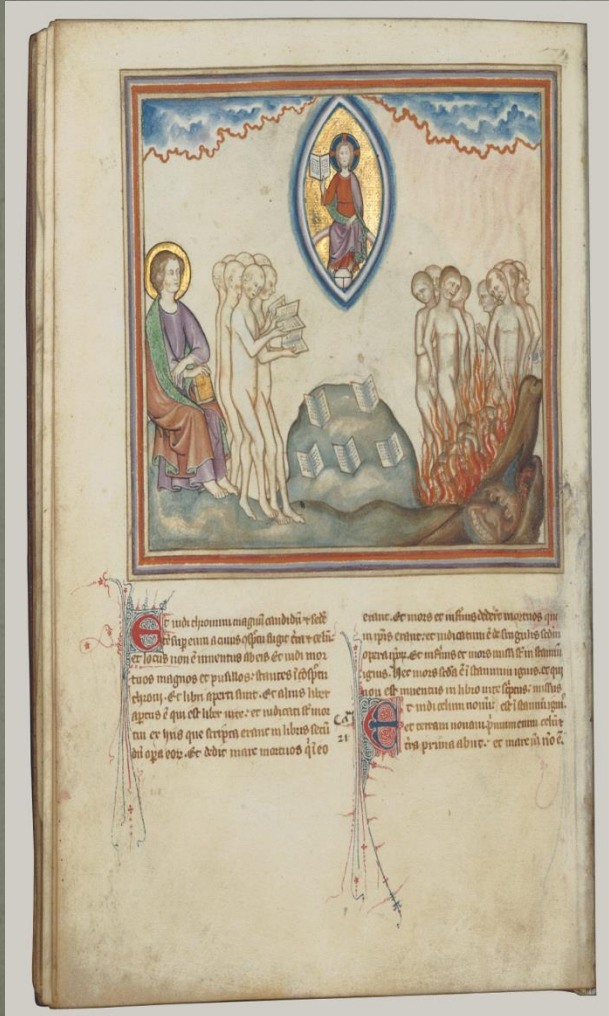 Et uidi thronum magnū candidū ⁊ sedē
tē sup eum a cuius ospctu fugit tr̄a ⁊ celū
et locus non ē inuentus ab eis Et uidi mor
tuos magnos et pusillos stantes ī ospctu
throni. Et libri aperti sunt. Et alius liber
aptus ē qui est liber uite. et iudicati st̄ mor
tui ex hiis que scripta erant in libris secū
dū opa eoꝝ. Et dedit mare mortuos q̄ i eo
erant. Et mors et infernus dederunt mortuos qui
in ip̄is erant. et iudicatum ē de singulis scdm
opera ipoꝝ. Et infernus et mors missi st̄ in stannū
ignis. Hec mors scda ē ī stannum ignis. et qui
non est inuentus in libro uite sc̄ptus. missus
est ī stannū igni.
Ca
21
Et uidi celum nouū
et terram nouam. primum enim celū ⁊
tr̄a prima abiit. et mare iā nō ē.